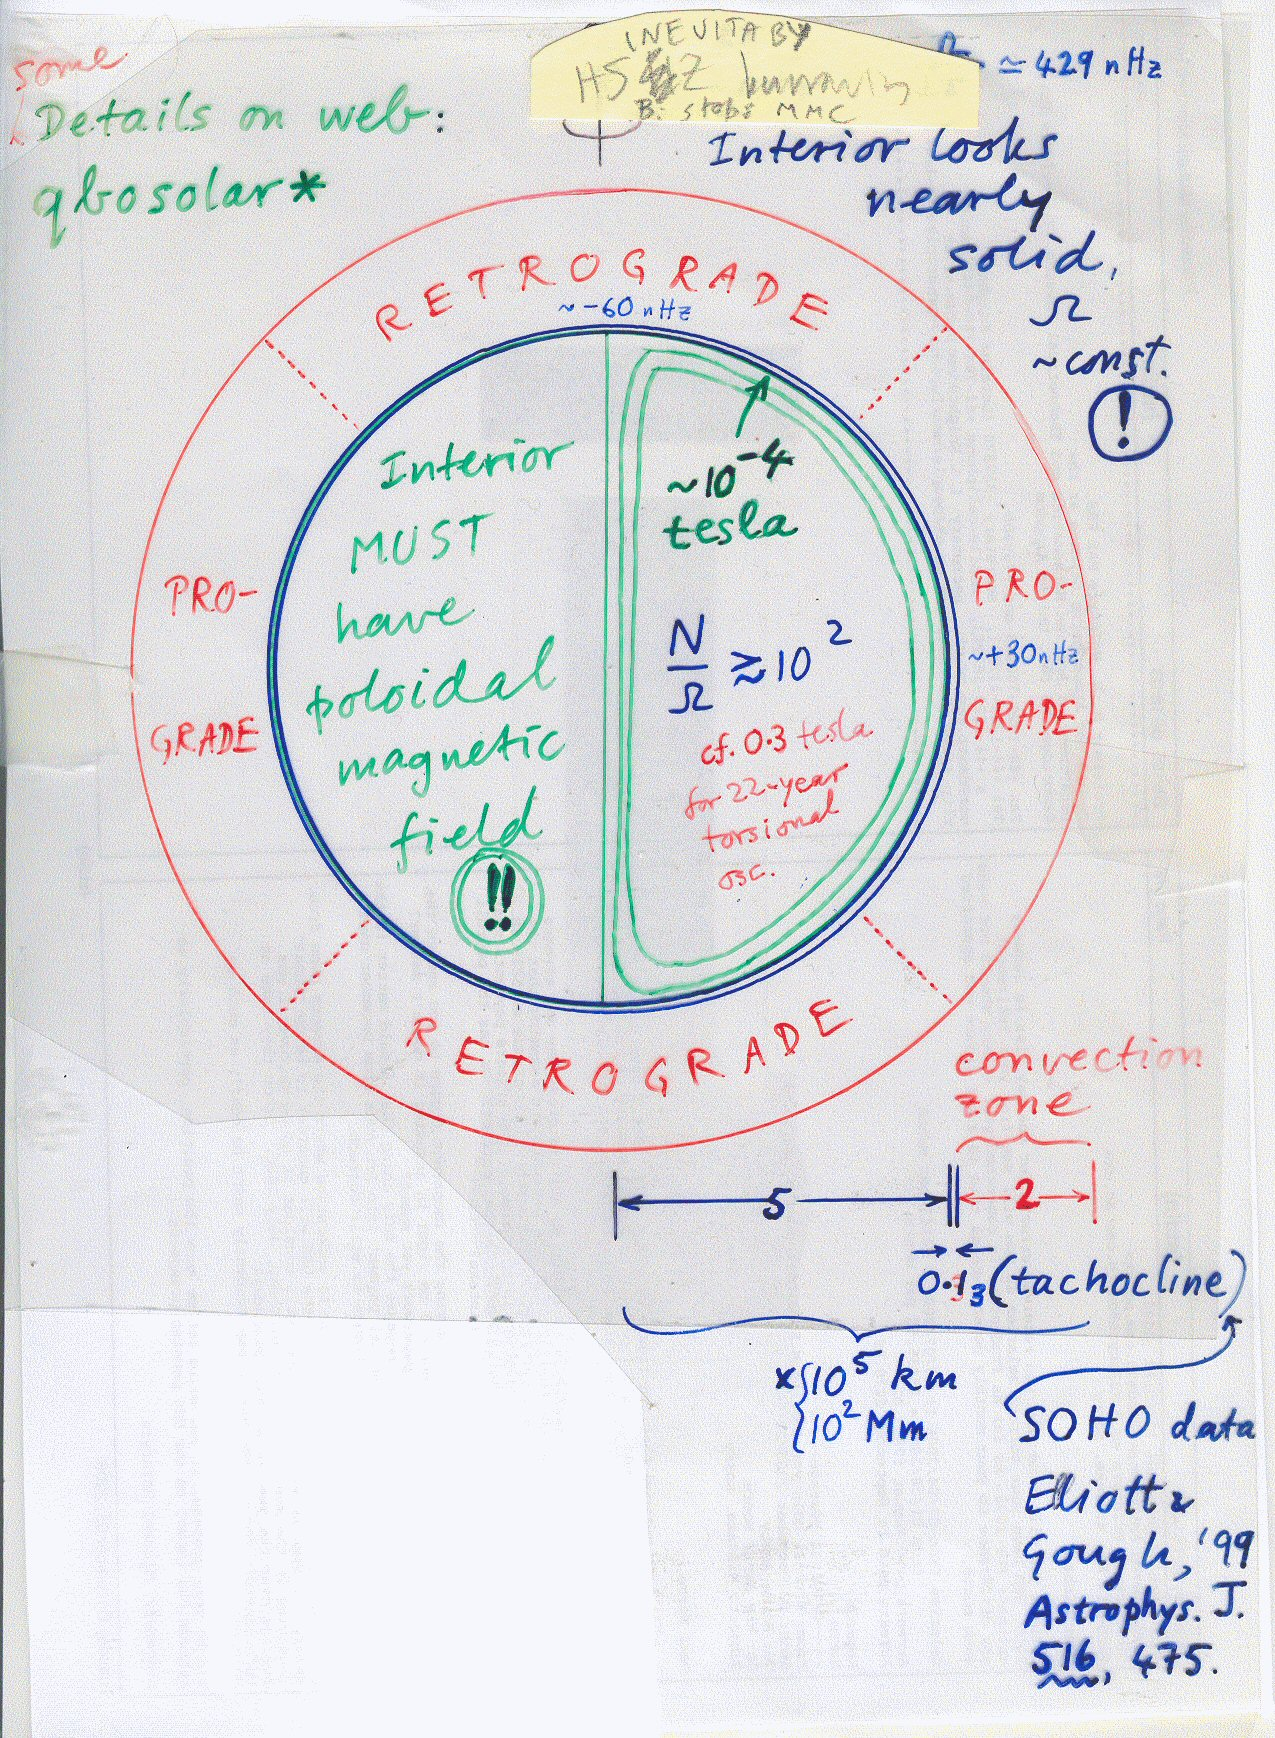 some
Details on web:
qbosolar*
INEVITABY
B: stops MMC
Ω ≃ 429 nHz
Interior looks
nearly
solid,
Ω
~const.
!
RETROGRADE
~ -60 nHz
Interior
MUST
have
poloidal
magnetic
field
!!
~10⁻⁴
tesla
N/Ω ≳ 10²
cf. 0.3 tesla
for 22-year
torsional
osc.
PRO-
GRADE
PRO-
~+30nHz
GRADE
RETROGRADE
convection
zone
5
2
0.13 (tachocline)
×{10⁵ km
{10² Mm
SOHO data
Elliott &
Gough, '99
Astrophys. J.
516, 475.